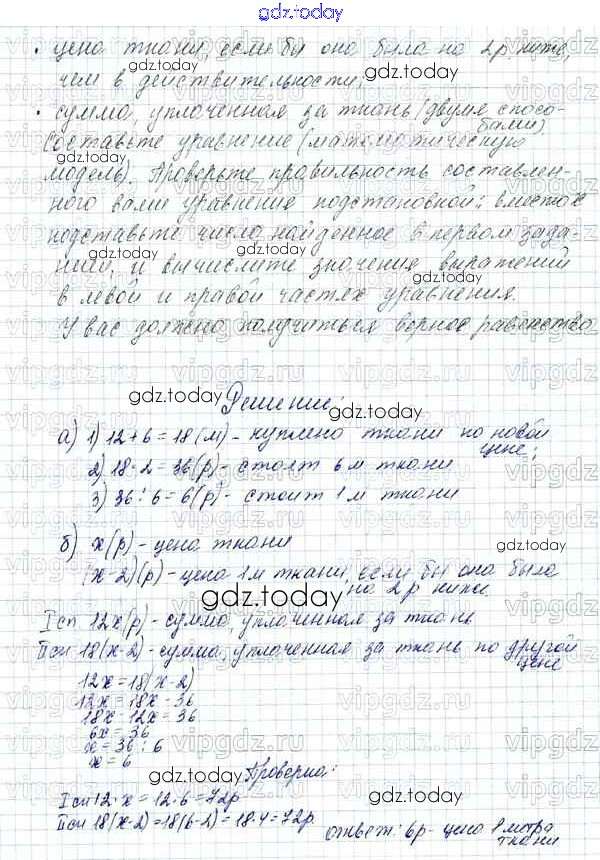 gdz.today
• цена ткани, если бы она была на 2р. ниже,
чем в действительности;
• сумма, уплаченная за ткань (двумя спосо-
бами)
Составьте уравнение (математическую
модель). Проверьте правильность составлен-
ного вами уравнения подстановкой: вместо х
подставьте число найденное в первом зада-
нии, и вычислите значения выражений
в левой и правой частях уравнения.
У вас должно получиться верное равенство
Решение:
а) 1) 12 + 6 = 18 (м) - куплено ткани по новой
цене;
2) 18 · 2 = 36 (р) - стоят 6 м ткани
3) 36 : 6 = 6 (р) - стоит 1 м ткани
б) х (р) - цена ткани
(х-2) (р) - цена 1 м ткани, если бы она была
на 2р ниже
I сп 12х (р) - сумма, уплаченная за ткань
II сп 18(х-2) - сумма, уплаченная за ткань по другой
цене
12х = 18(х-2)
12х = 18х - 36
18х - 12х = 36
6х = 36
х = 36 : 6
х = 6
Проверка:
I сп 12 · х = 12 · 6 = 72р
II сп 18(х-2) = 18(6-2) = 18 · 4 = 72р
ответ: 6р - цена 1 метра
ткани